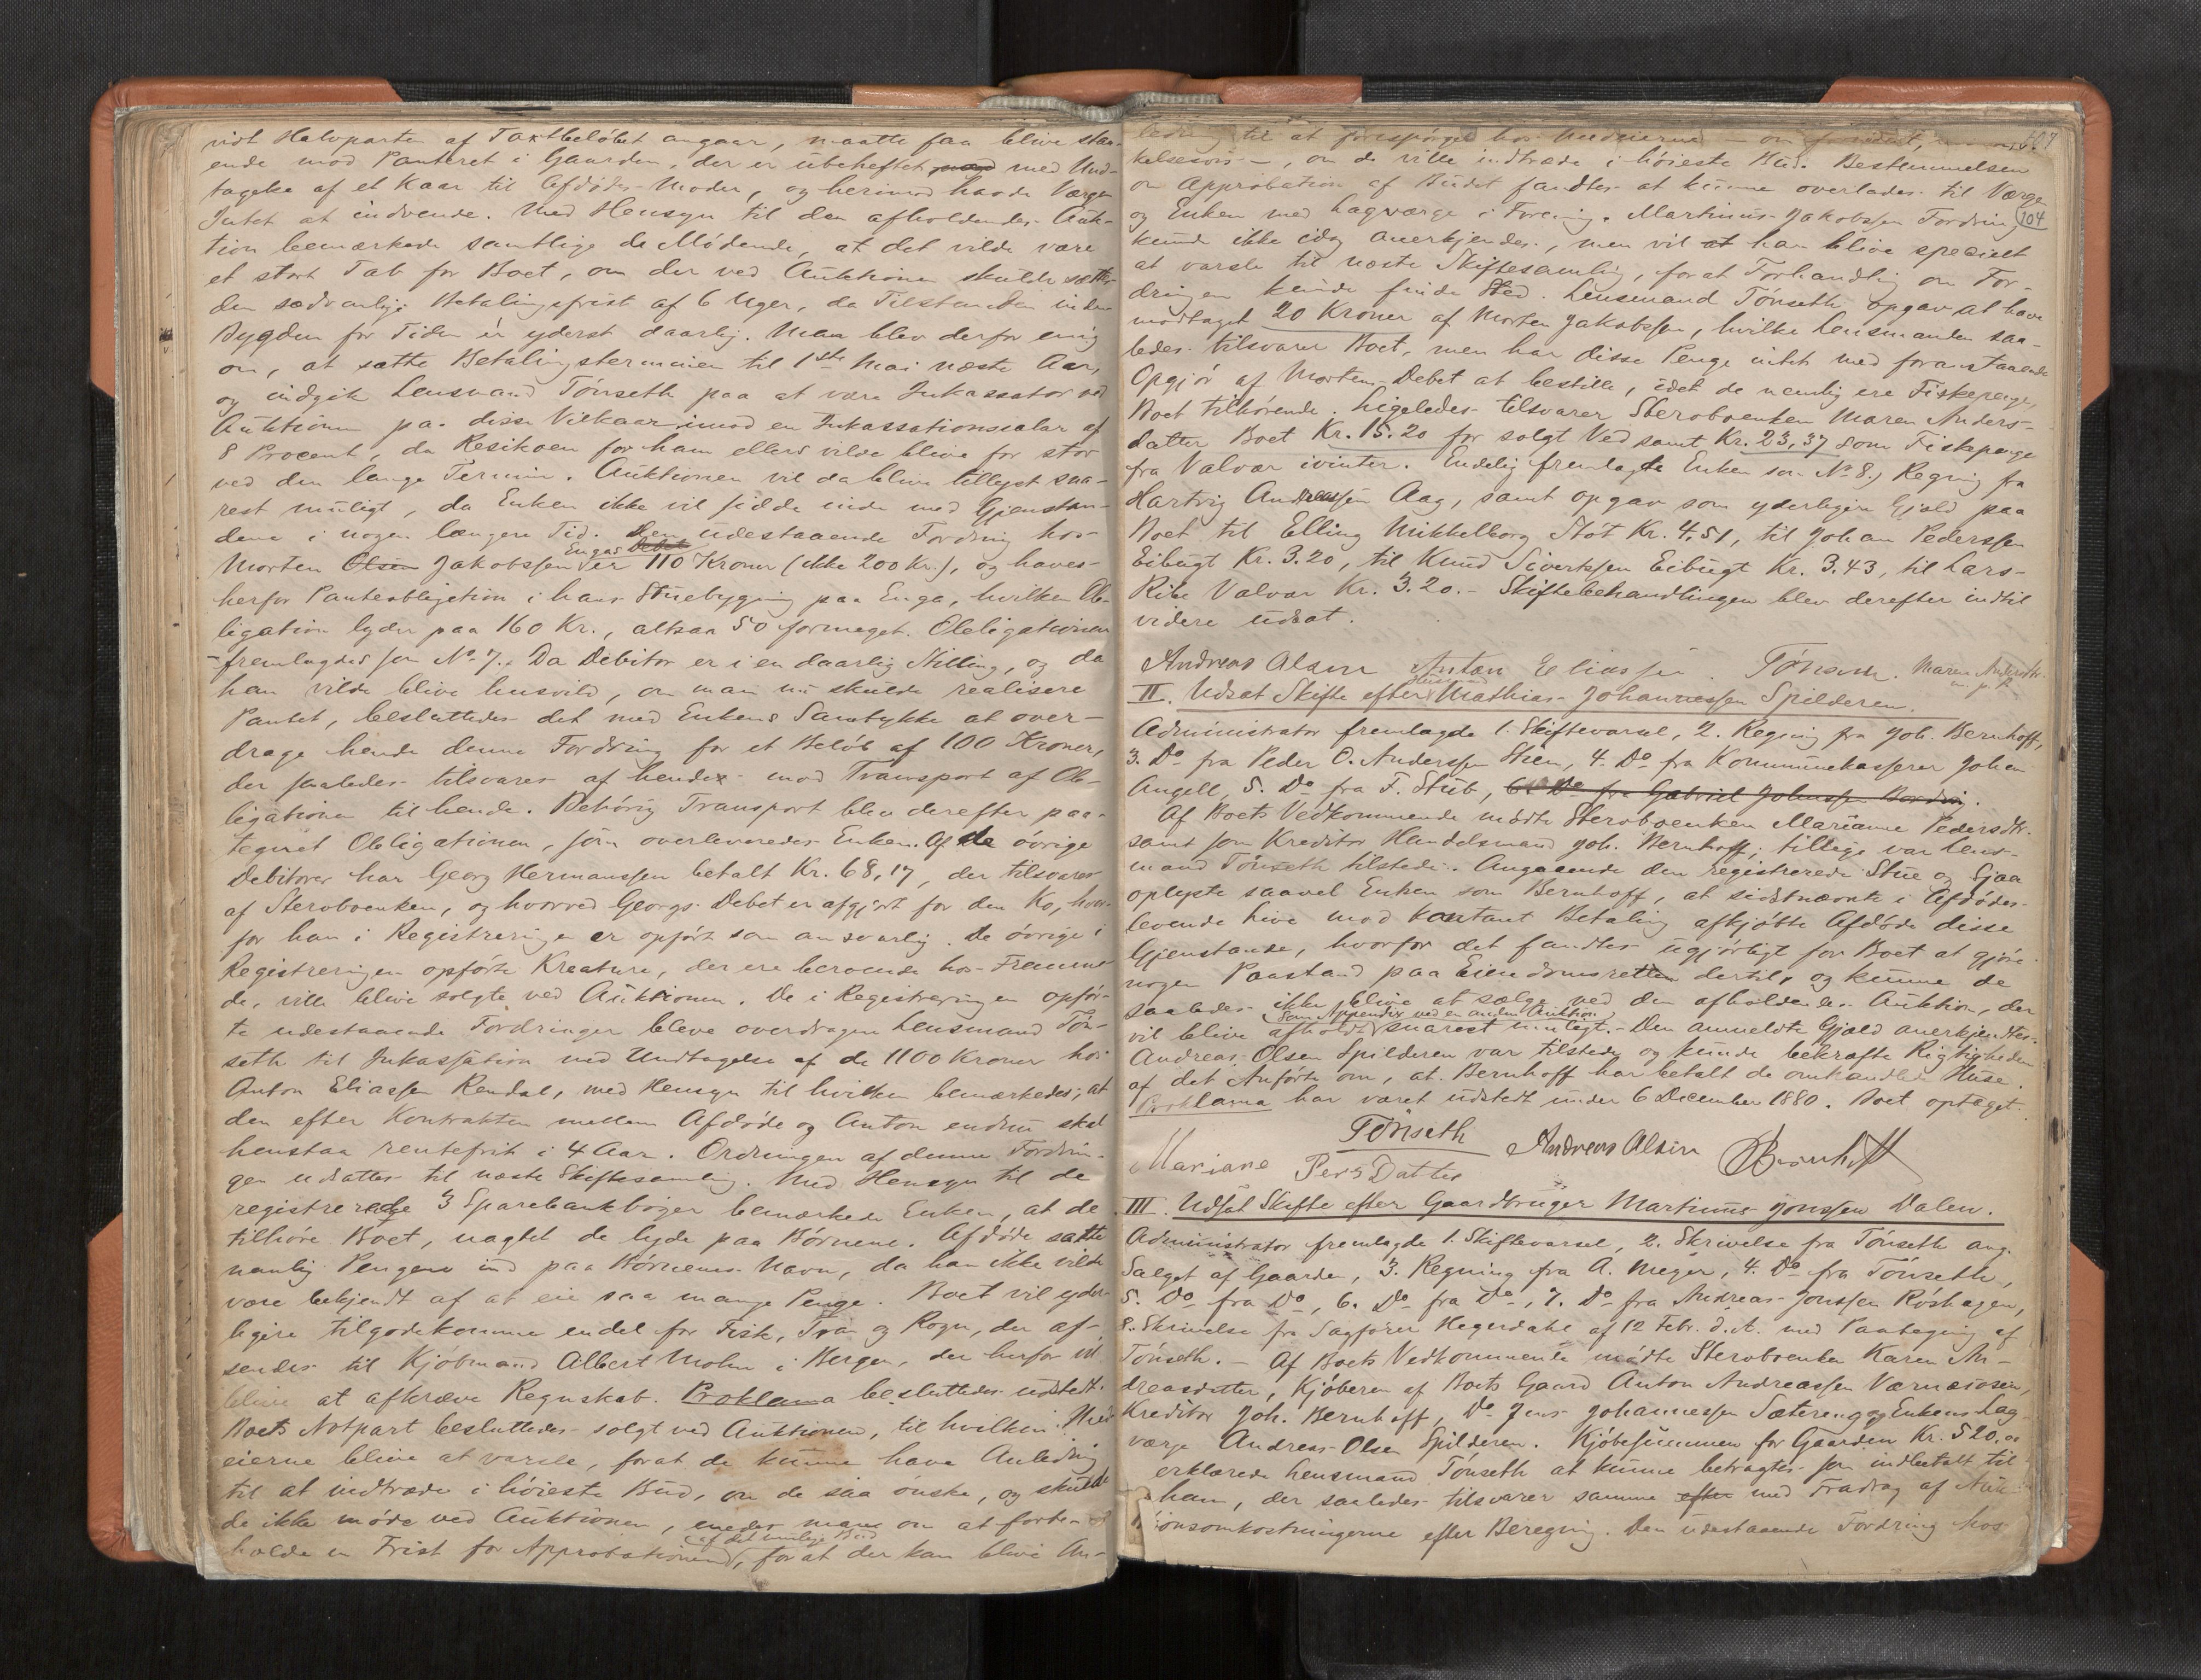 vidt Halvparten af Taxtbeløbet angaar, maatte faa blive staa-
ende mod Panteret i Gaarden, der er ubeheftet med Und-
tagelse af et Kaar til Afdødes Moder, og herimod havde Værgen
Intet at indvende. Med Hensyn til den afholdendes Auk-
tion bemærkede samtlige de Mødende, at det vilde være
et stort Tab for Boet, om der ved Auktionen skulde sættes
den sædvanlige Betalingsfrist af 6 Uger, da Tilstanden inden
Bygden for Tiden er yderst daarlig. Man blev derfor enig
om, at sætte Betalingsterminen til 1ste Mai næste Aar,
og indgik Lensmand Tønseth paa at være Inkassator ved
Auktionen paa disse Vilkaar imod en Inkassationssalær af
8 Procent, da Resikoen for ham ellers vilde blive for stor
ved den lange Termin. Auktionen vil da blive tillyst sna-
rest muligt, da Enken ikke vil sidde inde med Gjenstan-
dene i nogen længere Tid. Den udestaaende Fordring hos
Morten Olsen Jakobssen Enga's Debet er 110 Kroner (ikke 200 Kr.), og haves
herfor Panteobligation i hans Stuebygning paa Enga, hvilken Ob-
ligation lyder paa 160 Kr., altsaa 50 formeget. Obligationen
fremlagdes som No 7. Da Debitor er i en daarlig Stilling, og da
han vilde blive husvild, om man nu skulde realisere
Pantet, besluttedes det med Enkens Samtykke at over-
drage hende denne Fordring for et Beløb af 100 Kroner,
der saaledes tilsvares af hende mod Transport af Ob-
ligationen til hende. Behørig Transport blev derefter paa-
tegnet Obligationen, som overleveredes Enken. Af de øvrige
Debitorer har Georg Hermanssen betalt Kr. 68,17, der tilsvares
af Stervboenken, og hvorved Georgs Debet er afgjort for den Ko, hvor-
for han i Registreringen er opført som ansvarlig. De øvrige i
Registreringen opførte Kreature, der ere beroende hos Fremme-
de, ville blive solgte ved Auktionen. De i Registreringen opfør-
te udestaaende Fordringer bleve overdragne Lensmand Tøn-
seth til Inkassation med Undtagelse af de 1100 Kroner hos
Anton Eliassen Rendal, med Hensyn til hvilken bemærkedes, at
den efter Kontrakten mellem Afdøde og Anton endnu skal
henstaa rentefrit i 4 Aar. Ordningen af denne Fordrin-
gen udsattes til næste Skiftesamling. Med Hensyn til de
registrerede 3 Sparebankbøger bemærkede Enken, at de
tilhøre Boet, uagtet de lyde paa Børnene. Afdøde satte
nemlig Pengene ind paa Børnenes Navn, da han ikke vilde
være bekjendt af at eie saa mange Penge. Boet vil yder-
ligere tilgodekomme endel for Fisk, Tran og Rogn, der af-
sendes til Kjøbmand Albert Mohn i Bergen, der herfor vil
blive at afkræve Regnskab. Proklama besluttedes udstedt.
Boets Notpart besluttedes solgt ved Auktionen, til hvilken Med-
eierne blive at varsle, forat de kunne have Anledning
til at indtræde i høieste Bud, om de saa ønske, og skulde
de ikke møde ved Auktionen, enedes man om at forbe-
holde en Frist for Approbationen (af det mulige Bud), forat der kan blive An-
ledning til at forespørges hos Medeierne
kelsesvis —, om de ville indtræde i høieste Bud. Bestemmelsen
om Approbation af Budet fandtes at kunne overlades til Værgen
og Enken med Lagværge i Forening. Martinus Jakobssen Fordring
104
kunde ikke idag anerkjendes, men vil at han blive specielt
at varsle til næste Skiftesamling, forat Forhandling om For-
dringen kunde finde Sted. Lensmand Tønseth opgav at have
modtaget 20 Kroner af Morten Jakobssen, hvilke Lensmanden saa-
ledes tilsvarer Boet, men har disse Penge intet med foranstaaende
Opgjør af Mortens Debet at bestille, idet de nemlig ere Fiskepenge,
Boet tilhørende. Ligeledes tilsvarer Stervboenken Maren Anders-
datter Boet Kr. 15.20 for solgt Ved samt Kr. 23,37 som Fiskepenge
fra Valvær ivinter. Endelig fremlagde Enken som No 8.) Regning fra
Hartvig Andreassen Aag, samt opgav som yderligere Gjæld paa
Boet til Elling Mikkelborg Støt Kr. 4.51, til Johan Pederssen
Eibugt Kr. 3.20, til Knud Sivertssen Eibugt Kr. 3.43, til Lars
Ribe Valvær Kr. 3.20. — Skiftebehandlingen blev derefter indtil
videre udsat.
Andreas Olsen Anton Eliassen. Tønseth. Maren Andersdtr.
m. p. P.
II. Udsat Skifte efter Husmand Mathias Johannessen Spilderen.
Administrator fremlagde 1. Skiftevarsel, 2. Regning fra Joh. Bernhoff,
3. Do fra Peder O. Anderssen Steen, 4. Do fra Kommunekasserer Johan
Angell, 5. Do fra F. Stub, 6. Do fra Gabriel Johnssen Bordvig.
Af Boets Vedkommende mødte Stervboenken Marianne Pedersdtr.
samt som Kreditor Handelsmand Joh. Bernhoff; tillige var Lens-
mand Tønseth tilstede. Angaaende den registrerede Stue og Gjæa
oplyste saavel Enken som Bernhoff, at sidstnævnte i Afdødes
levende Live mod kontant Betaling afkjøbte Afdøde disse
Gjenstande, hvorfor det fandtes ugjørligt for Boet at gjøre
nogen Paastand paa Eiendomsretten dertil, og kunne de
saaledes ikke blive at sælge ved den afholdendes Auktion, der
vil blive afholdt (som Appendix ved en anden Auktion) snarest muligt. — Den anmeldte Gjæld anerkjendtes.
Andreas Olsen Spilderen var tilstede og kunde bekræfte Rigtigheden
af det Anførte om, at Bernhoff har betalt de omhandlede Huse.
Proklama har været udstedt under 6 December 1880. Boet optaget.
Tønseth Andreas Olsen Bernhoff
Mariane Pers Datter
III. Udsat Skifte efter Gaardbruger Martinus Jonssen Dalen.
Administrator fremlagde 1. Skiftevarsel, 2. Skrivelse fra Tønseth ang.
Salget af Gaarden, 3. Regning fra A. Meyer, 4. Do fra Tønseth,
5. Do fra Do, 6. Do fra Do, 7. Do fra Andreas Jonssen Røshagen,
8. Skrivelse fra Sagfører Hegerdahl af 12 Febr. d. A. med Paategning af
Tønseth. — Af Boets Vedkommende mødte Stervboenken Karen An-
dreasdatter, Kjøberen af Boets Gaard Anton Andreassen Værnæsosen,
Kreditor Joh. Bernhoff, Do Jens Johannessen Sætereng og Enkens Lag-
værge Andreas Olsen Spilderen. Kjøbesummen for Gaarden Kr. 520.00
erklærede Lensmand Tønseth at kunne betragtes som indbetalt til
ham, der saaledes tilsvarer samme efter med Fradrag af Auk-
tionsomkostningerne efter Beregning. Den udestaaende Fordring hos